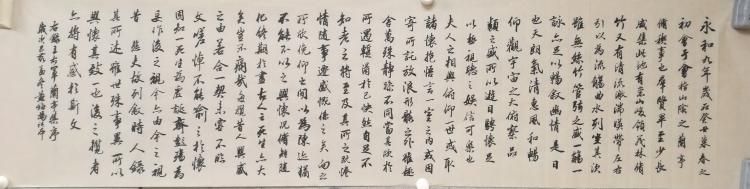 永和九年歲在癸丑暮春之
初會于會稽山陰之蘭亭
脩禊事也群賢畢至少長
咸集此地有崇山峻領茂林脩
竹又有清流激湍暎帶左右
引以為流觴曲水列坐其次
雖無絲竹管弦之盛一觴一
詠亦足以暢敘幽情是日
也天朗氣清惠風和暢
仰觀宇宙之大俯察品
類之盛所以遊目騁懷足
以極視聽之娛信可樂也
夫人之相與俯仰一世或取
諸懷抱悟言一室之內或因
寄所託放浪形骸之外雖趣
舍萬殊靜躁不同當其欣於
所遇暫得於己怏然自足不
知老之將至及其所之既惓
情隨事遷感慨係之矣向之
所欣俛仰之間以為陳迹猶
不能不以之興懷況脩短隨
化終期於盡古人云死生亦大
矣豈不痛哉每攬昔人興感
之由若合一契未嘗不臨
文嗟悼不能喻之於懷
固知一死生為虛誕齊彭殤為
妄作後之視今亦由今之視
昔悲夫故列敘時人錄
其所述雖世殊事異所以
興懷其致一也後之攬者
亦將有感於斯文
右錄王右軍蘭亭集序